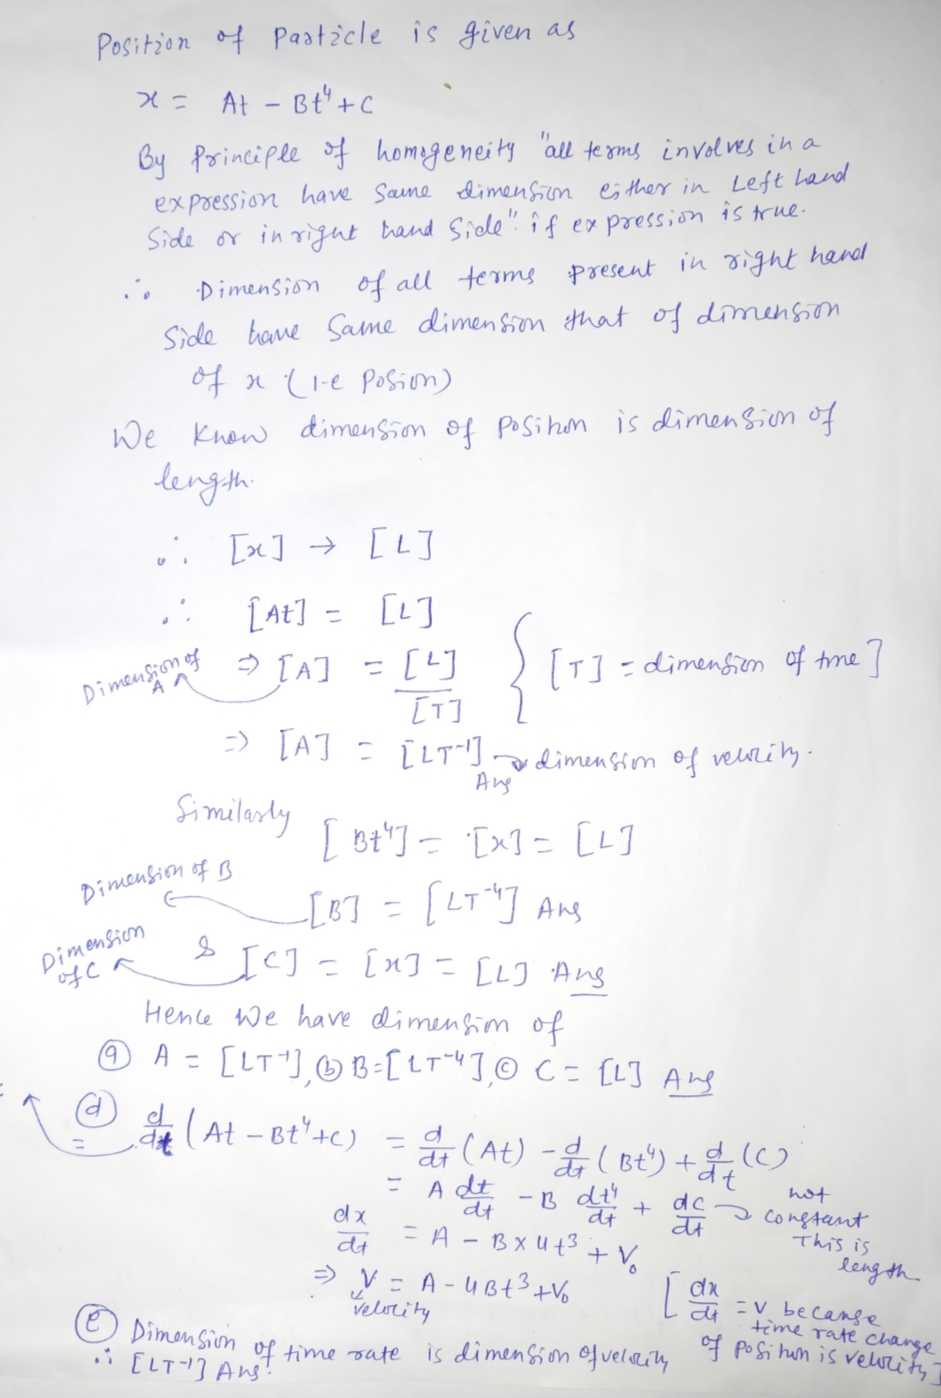 Position of Particle is given as
x = At - Bt⁴ + C
By Principle of homogeneity "all terms involves in a
expression have Same dimension either in Left hand
Side or in right hand Side" if expression is true.
∴ Dimension of all terms present in right hand
Side have Same dimension that of dimension
of x (i-e Posion)
We Know dimension of Position is dimension of
length.
∴ [x] → [L]
∴ [At] = [L]
Dimension of A ⇒ [A] = [L]/[T] { [T] = dimension of time ]
⇒ [A] = [LT⁻¹] → dimension of velocity.
Ans
Similarly
[Bt⁴] = [x] = [L]
Dimension of B
[B] = [LT⁻⁴] Ans
Dimension of C & [C] = [x] = [L] Ans
Hence We have dimension of
ⓐ A = [LT⁻¹], ⓑ B = [LT⁻⁴], ⓒ C = [L] Ans
ⓓ d/dt (At - Bt⁴ + C) = d/dt (At) - d/dt (Bt⁴) + d/dt (C)
= A dt/dt - B dt⁴/dt + dc/dt → not constant This is length
dx/dt = A - B × 4t³ + V₀
⇒ V = A - 4Bt³ + V₀
velocity
[ dx/dt = V because time rate change of Position is velocity ]
ⓔ Dimension of time rate is dimension of velocity
∴ [LT⁻¹] Ans.